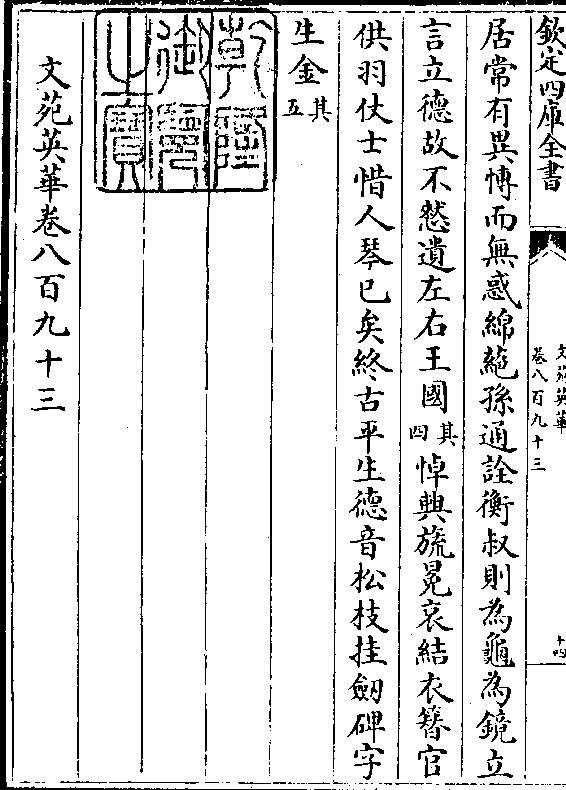 欽定四庫全書
文苑英華
卷八百九十三
十四
居常有異慱而無惑綿蕝孫通詮衡叔則為龜為鏡立
言立德故不憖遺左右王國其四悼興旒冕哀結衣簪官
供羽仗士惜人琴已矣終古平生德音松枝挂劒碑字
生金其五
乾隆御覽之寶
文苑英華卷八百九十三